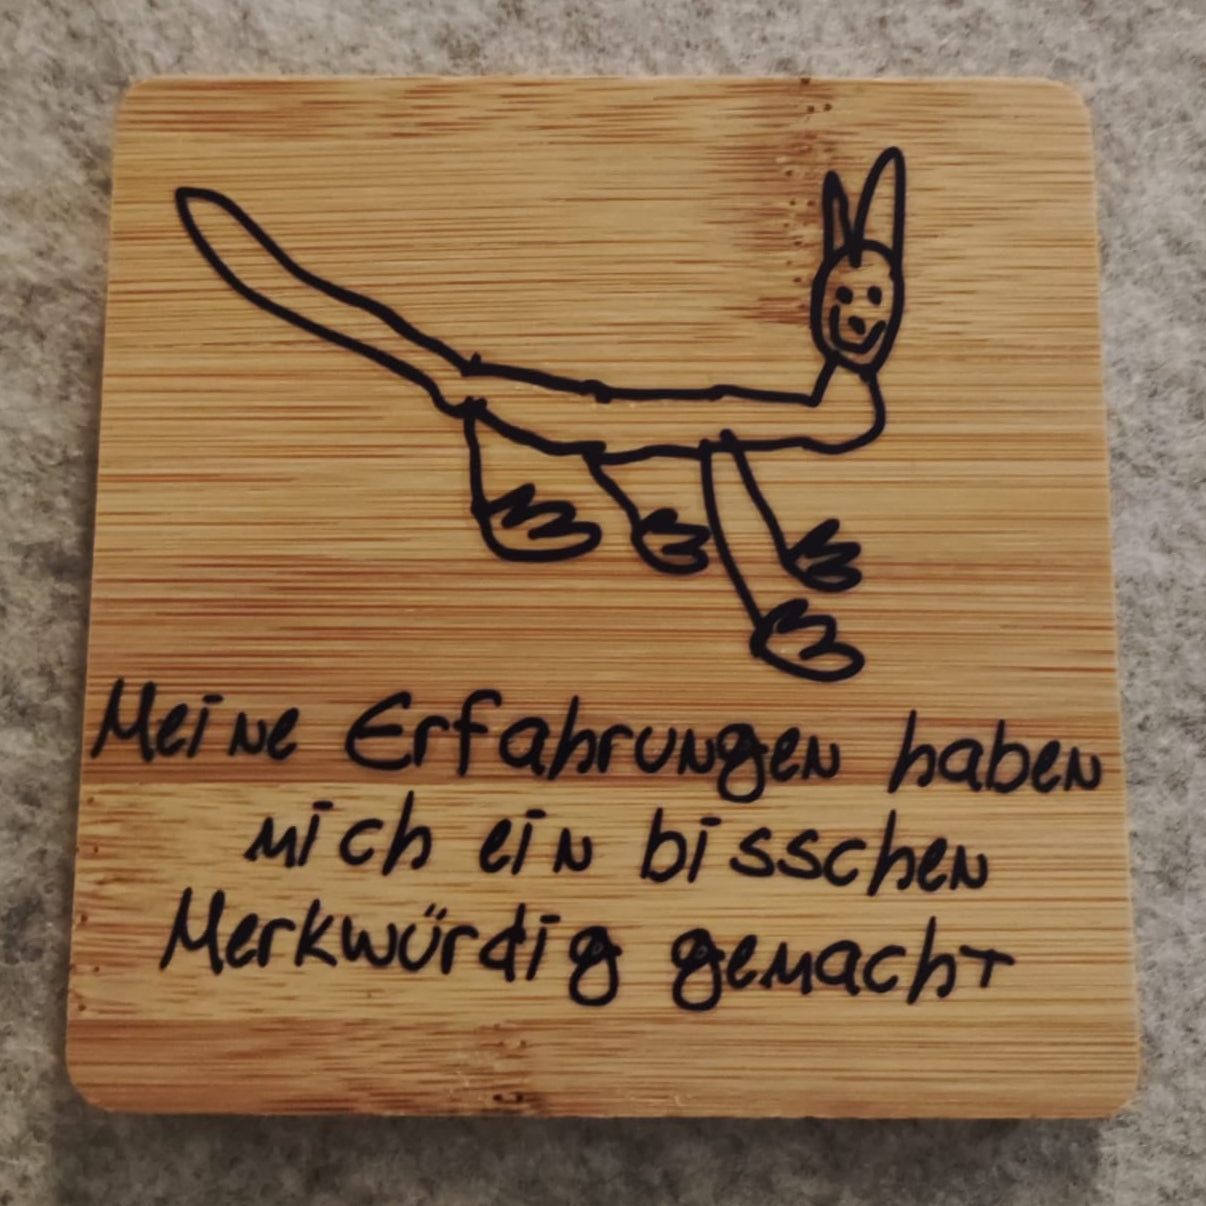 Meine Erfahrungen haben
mich ein bisschen
Merkwürdig gemacht